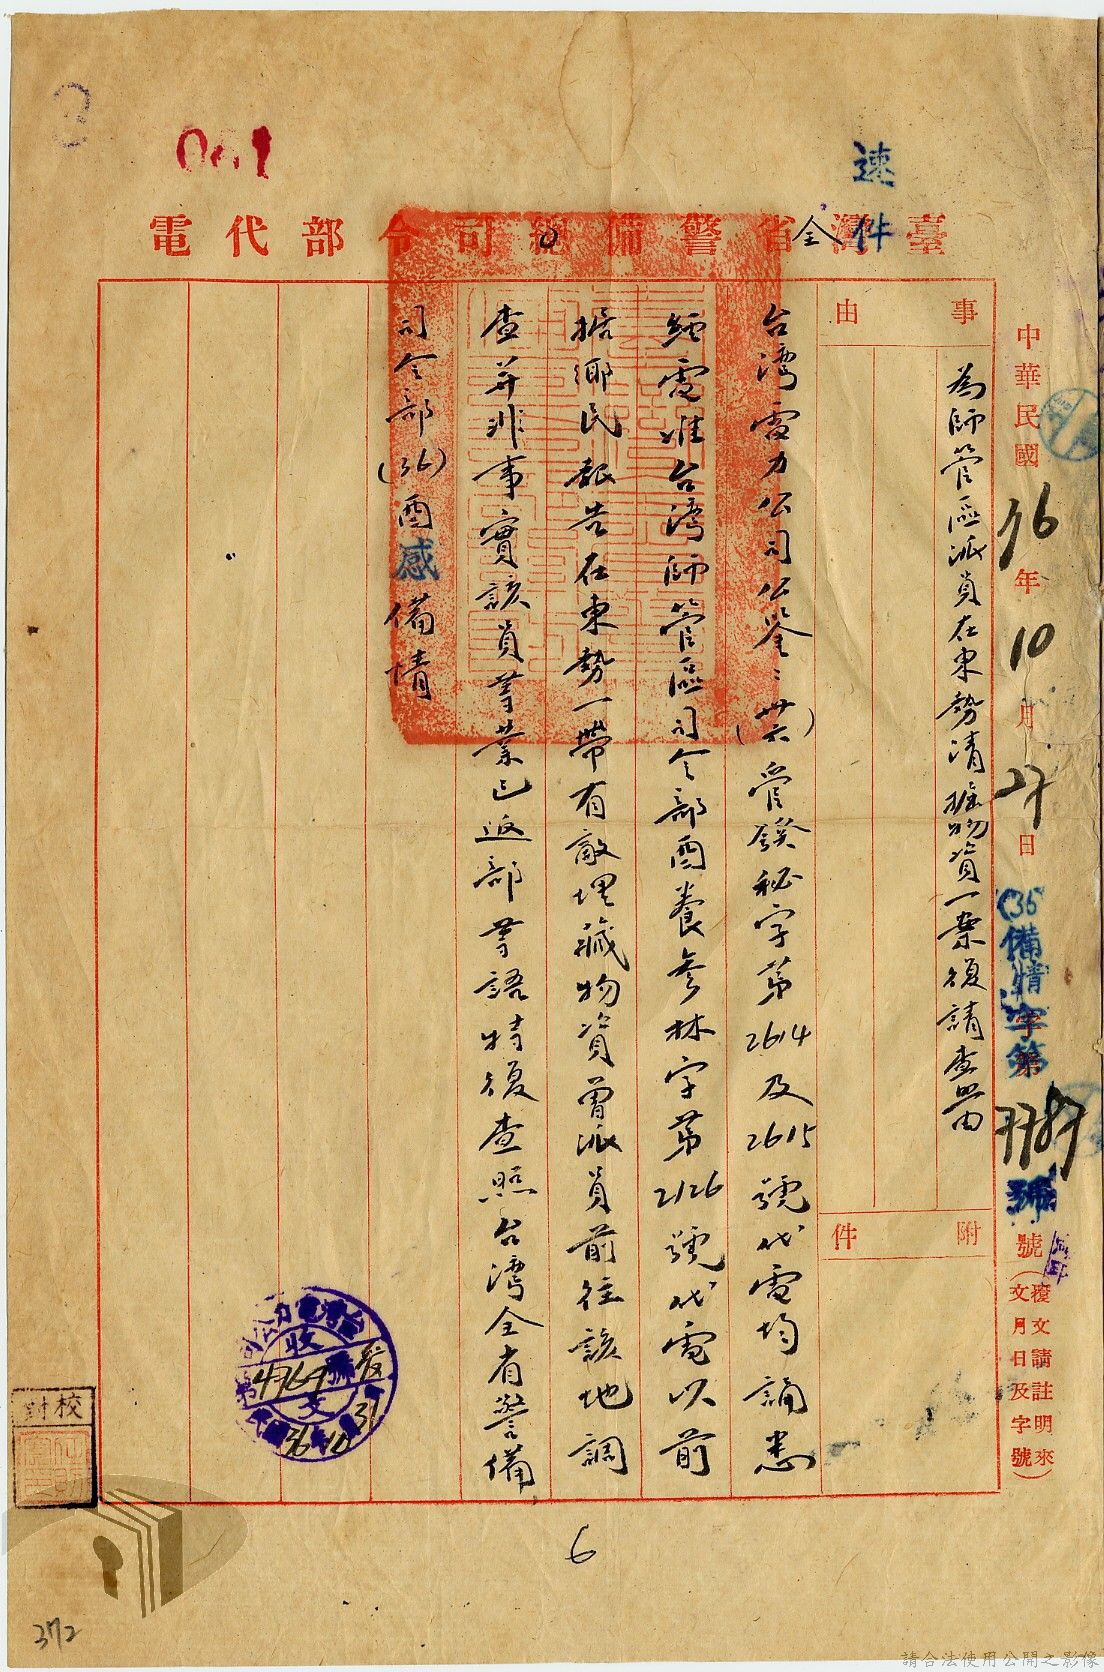 速件
臺灣全省警備總司令部代電
中華民國36年10月27日
(36)備情字第7787號
(覆文請註明來文月日及字號)
事由
為師管區派員在東勢清掘物資一案復請查照由
附件
台灣電力公司公鑒:(卅六)管發秘字第2614及2615號代電均誦悉
經電准台灣師管區司令部酉養參林字第2126號代電以前
據鄉民報告在東勢一帶有敵埋藏物資曾派員前往該地調
查并非事實該員等業已返部等語特復查照台灣全省警備
司令部(36)酉感備情
校對
收文
36年10月31
6
372
請合法使用公開之影像